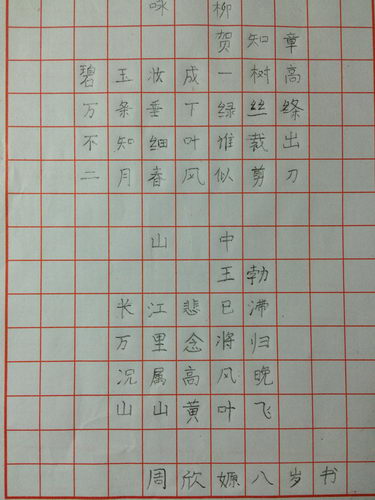 咏柳
贺知章
碧玉妆成一树高
万条垂下绿丝绦
不知细叶谁裁出
二月春风似剪刀
山中
王勃
长江悲已滞
万里念将归
况属高风晚
山山黄叶飞
周欣嫄八岁书